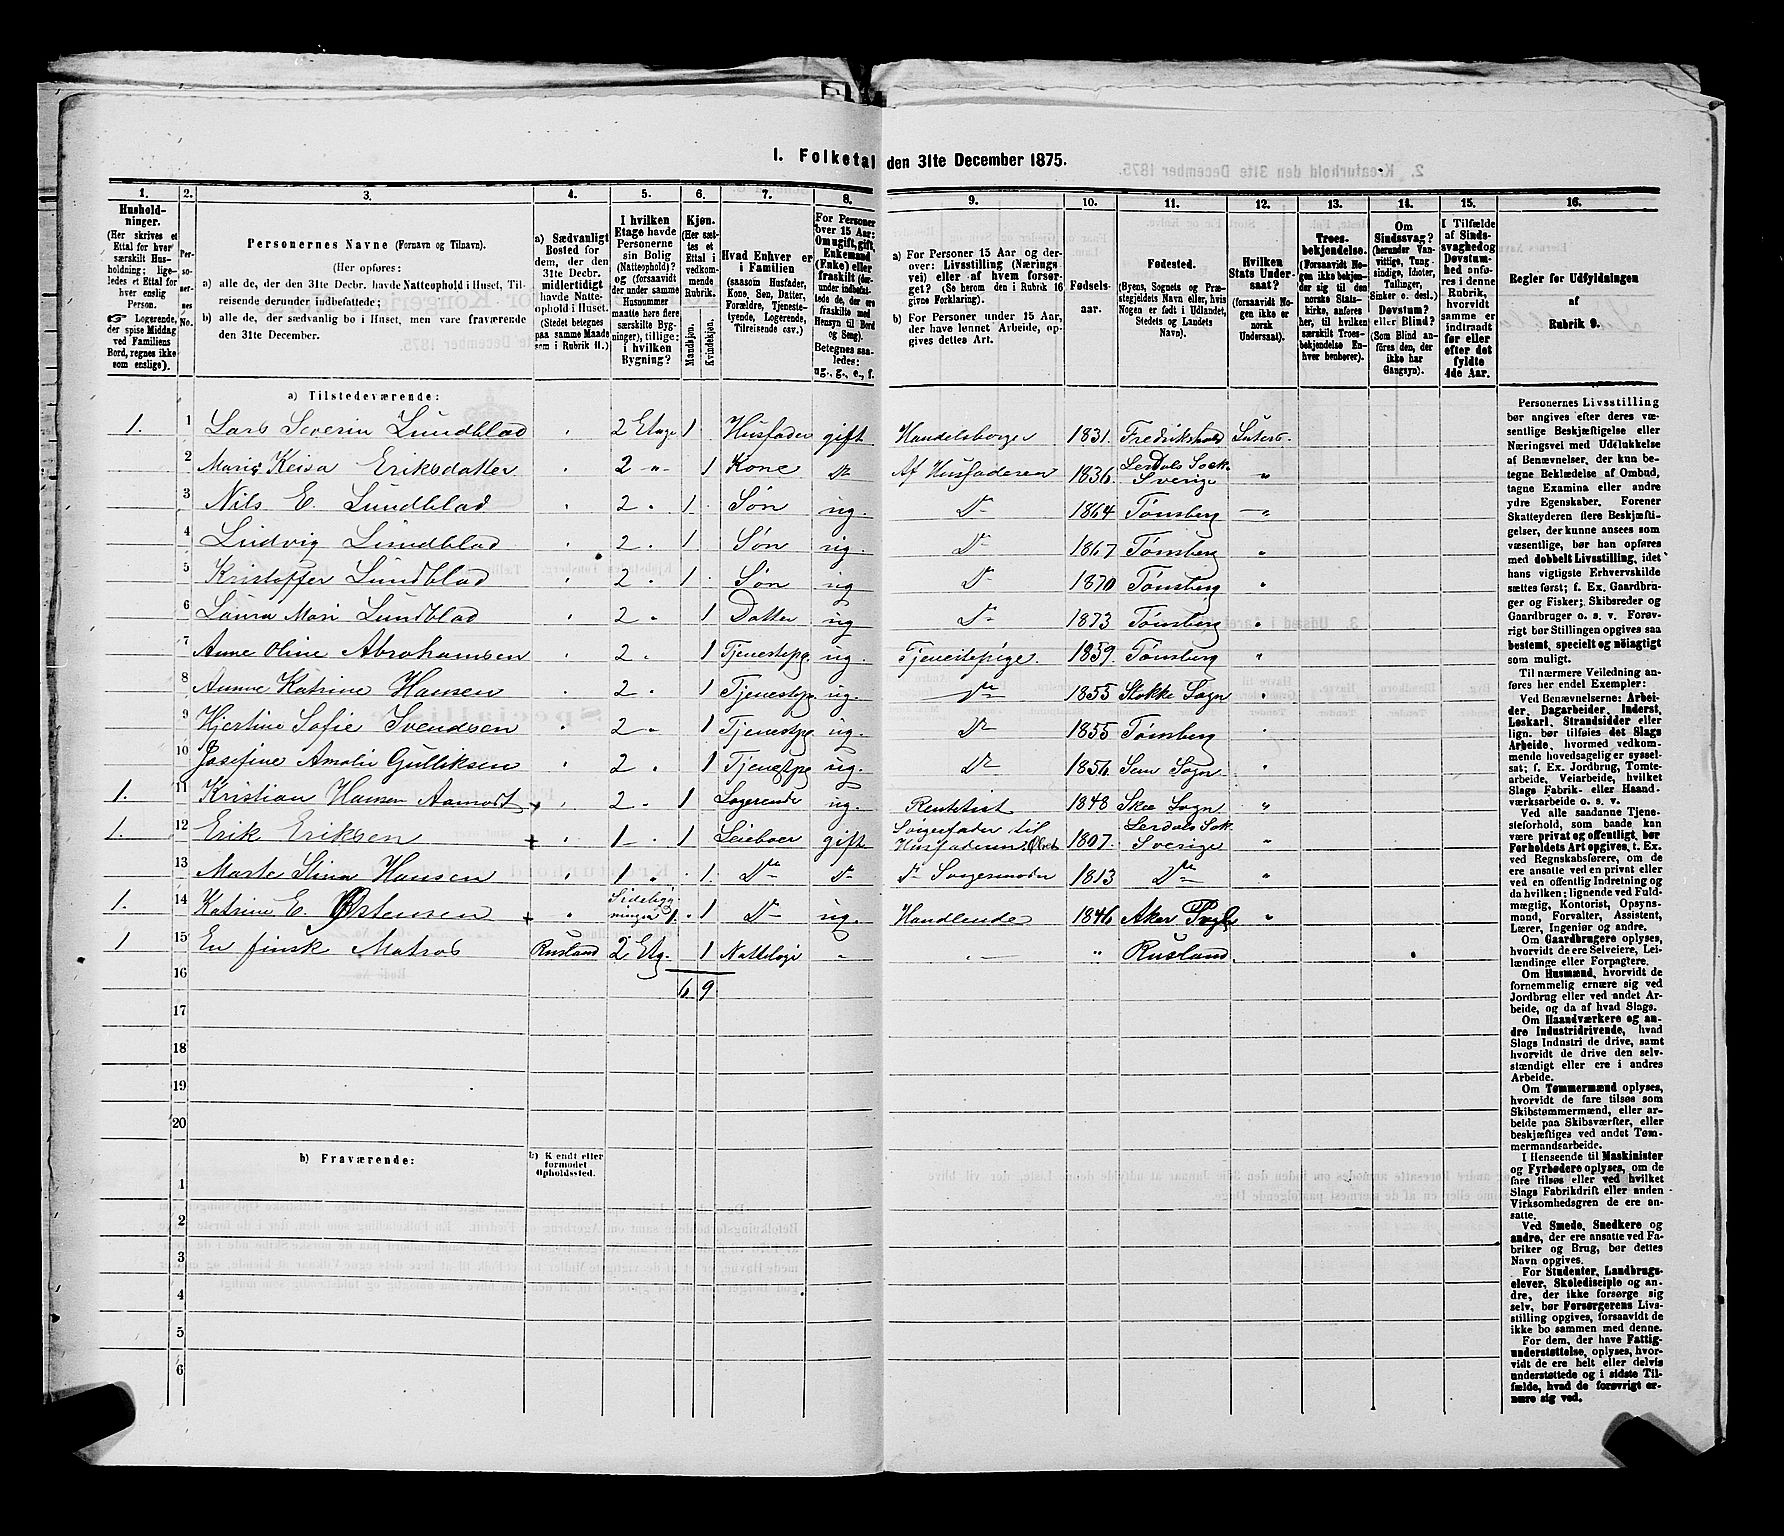 I. Folketal den 31te December 1875.
1. 2. 3. 4. 5. 6. 7. 8. 9. 10. 11. 12. 13. 14. 15. 16.
Hushold-
ninger.
(Her skrives et
Ettal for hver
særskilt Hus-
holdning; lige-
ledes et Ettal
for hver enslig
Person.
☞ Logerende,
der spise Middag
ved Familiens
Bord, regnes ikke
som enslige).
Per-
so-
ner-
nes
No.
Personernes Navne (Fornavn og Tilnavn).
(Her opføres:
a) alle de, der den 31te Decbr. havde Natteophold i Huset, Til-
reisende derunder indbefattede;
b) alle de, der sædvanlig bo i Huset, men vare fraværende
den 31te December.
a) Sædvanligt
Bosted for
dem, der den
31te Decbr.
midlertidigt
havde Natte-
ophold i Huset.
(Stedet betegnes
paa samme Maade
som i Rubrik 11.)
I hvilken
Etage havde
Personerne
sin Bolig
(Natteophold)?
og (forsaavidt
der under samme
Husnummer
maatte høre flere
særskilte Byg-
ninger), tillige:
i hvilken
Bygning?
Kjøn.
(Her sæt-
tes et
Ettal i
vedkom-
mende
Rubrik.
Mandkjøn.
Kvindekjøn.
Hvad Enhver er
i Familien
(saasom Husfader,
Kone, Søn, Datter,
Forældre, Tjeneste-
tyende, Logerende,
Tilreisende osv.)
For Personer
over 15 Aar:
Om ugift, gift,
Enkemand
(Enke) eller
fraskilt (der-
under indbefat-
tede de, der ere
fraskilte med
Hensyn til Bord
og Seng).
Betegnes saa-
ledes:
ug., g., e., f.
a) For Personer 15 Aar og der-
over: Livsstilling (Nærings-
vei) eller af hvem forsør-
get? (Se herom den i Rubrik 16
givne Forklaring).
b) For Personer under 15 Aar,
der have lønnet Arbeide, op-
gives dettes Art.
Fødsels-
aar.
Fødested.
(Byens, Sognets og Præ-
stegjeldets Navn eller, hvis
Nogen er født i Udlandet,
Stedets og Landets
Navn).
Hvilken
Stats Under-
saat?
(forsaavidt No-
gen ikke er
norsk
Undersaat).
Troes-
bekjendelse.
(Forsaavidt No-
gen ikke bekjen-
der sig til den
norske Stats-
kirke, anføres
her, til hvilken
særskilt Troes-
bekjendelse En-
hver henhører).
Om
Sindssvag?
(herunder Van-
vittige, Tung-
sindige, Idioter,
Tullinger,
Sinker o. desl.)
Døvstum?
eller Blind?
(Som Blind an-
føres den, der
ikke har
Gangsyn).
I Tilfælde
af Sinds-
svaghed og
Døvstum-
hed anfø-
res i denne
Rubrik,
hvorvidt
samme er
indtraadt
før eller
efter det
fyldte
4de Aar.
Regler for Udfyldningen
af
Rubrik 9.
a) Tilstedeværende:
1. 1 Lars Severin Lundblad 2 Etage 1 Husfader gift Handelsborger 1831. Fredrikshald
2 Keisa Eriksdatter 2 1 Kone Af Husfaderen 1836. Lerdals Sok. Sverige
3 Nils E. Lundblad 2 1 Søn ug. 1864 Tønsberg
4 Ludvig Lundblad 2 1 Søn ug. 1867 Tønsberg
5 Kristoffer Lundblad 2 1 Søn ug 1870 Tønsberg
6 Laura Mari Lundblad 2 1 Datter ug 1873 Tønsberg
7 Anne Oline Abrahamsen 2 1 Tjenestepg. ug. Tjenestepige. 1839. Tønsberg
8 Katrine Hansen 2 1 Tjenestpg ug. 1855 Stokke Sogn
9 Hjertine Sofie Svendsen 2 1 Tjenestpg ug. 1855 Tønsberg
10 Josefine Amalie Gulliksen 2 1 Tjenestpg ug. 1856 Sem Sogn
1. 11 Kristian Hansen Aamodt + 2 1 Logerende ug. Rentetist 1848 Skee Sogn
1. 12 Erik Eriksen + 1 1 Leieboer gift Svigerfader til Husfaderen 1807. Lerdals Sok. Sverige
13 Marte Stina Hansen 1 1 Svigermoder 1813
1. 14 Katrine E. Østensen + 1. 1 ug. Handlende 1846 Aker
1 15 En finsk Matros Rusland 2 Etg. 1 Natteloge Rusland.
16 6 9
17
18
19
20
b) Fraværende:
b) Kjendt eller
formodet
Opholdssted.
1
2
3
4
5
6
Personernes Livsstilling
bør angives efter deres væ-
sentlige Beskjæftigelse eller
Næringsvei med Udelukkelse
af Benævnelser, der kun be-
tegne Beklædelse af Ombud,
tagne Examina eller andre
ydre Egenskaber. Forener
Skatteyderen flere Beskjæfti-
gelser, der kunne ansees som
væsentlige, bør han opføres
med dobbelt Livsstilling, idet
hans vigtigste Erhvervskilde
sættes først; f. Ex. Gaardbru-
ger og Fisker; Skibsreder og
Gaardbruger o. s. v. Forøv-
rigt bør Stillingen opgives saa
bestemt, specielt og nøiagtigt
som muligt.
Til nærmere Veiledning an-
føres her endel Exempler:
Ved Benævnelserne: Arbei-
der, Dagarbeider, Inderst,
Løskarl, Strandsidder eller
lign. bør tilføies det Slags
Arbeide, hvormed vedkom-
mende hovedsagelig er syssel-
sat; f. Ex. Jordbrug, Tomte-
arbeide, Veiarbeide, hvilket
Slags Fabrik- eller Haand-
værksarbeide o. s. v.
Ved alle saadanne Tjene-
steforhold, som baade kan
være privat og offentligt, bør
Forholdets Art opgives, t. Ex.
ved Regnskabsførere, om de
ere ansatte ved en privat eller
ved en offentlig Indretning og
da hvilken; lignende ved Fuld-
mægtig, Kontorist, Opsyns-
mand, Forvalter, Assistent,
Lærer, Ingeniør og andre.
Om Gaardbrugere oplyses,
hvorvidt de ere Selveiere, Lei-
lændinge eller Forpagtere.
Om Husmænd, hvorvidt de
fornemmelig ernære sig ved
Jordbrug eller ved andet Ar-
beide, og da af hvad Slags.
Om Haandværkere og an-
dre Industridrivende, hvad
Slags Industri de drive, samt
hvorvidt de drive den selv-
stændigt eller ere i andres
Arbeide.
Om Tømmermænd oplyses,
hvorvidt de fare tilsøs som
Skibstømmermænd, eller ar-
beide paa Skibsværfter, eller
beskjæftiges ved andet Tøm-
mermandsarbeide.
I Henseende til Maskinister
og Fyrbødere oplyses, om de
fare tilsøs eller ved hvilket
Slags Fabrikdrift eller anden
Virksomhedsgren de ere an-
satte.
Ved Smede, Snedkere og
andre, der ere ansatte ved Fa-
briker og Brug, bør dettes
Navn opgives.
For Studenter, Landbrugs-
elever, Skoledisciple og an-
dre, der ikke forsørge sig
selv, bør Forsørgerens Livs-
stilling opgives, forsaavidt de
ikke bo sammen med denne.
For dem, der have Fattig-
understøttelse, oplyses, hvor-
vidt de ere helt eller delvis
understøttede og i sidste Til-
fælde, hvad de forøvrigt er-
nære sig ved.